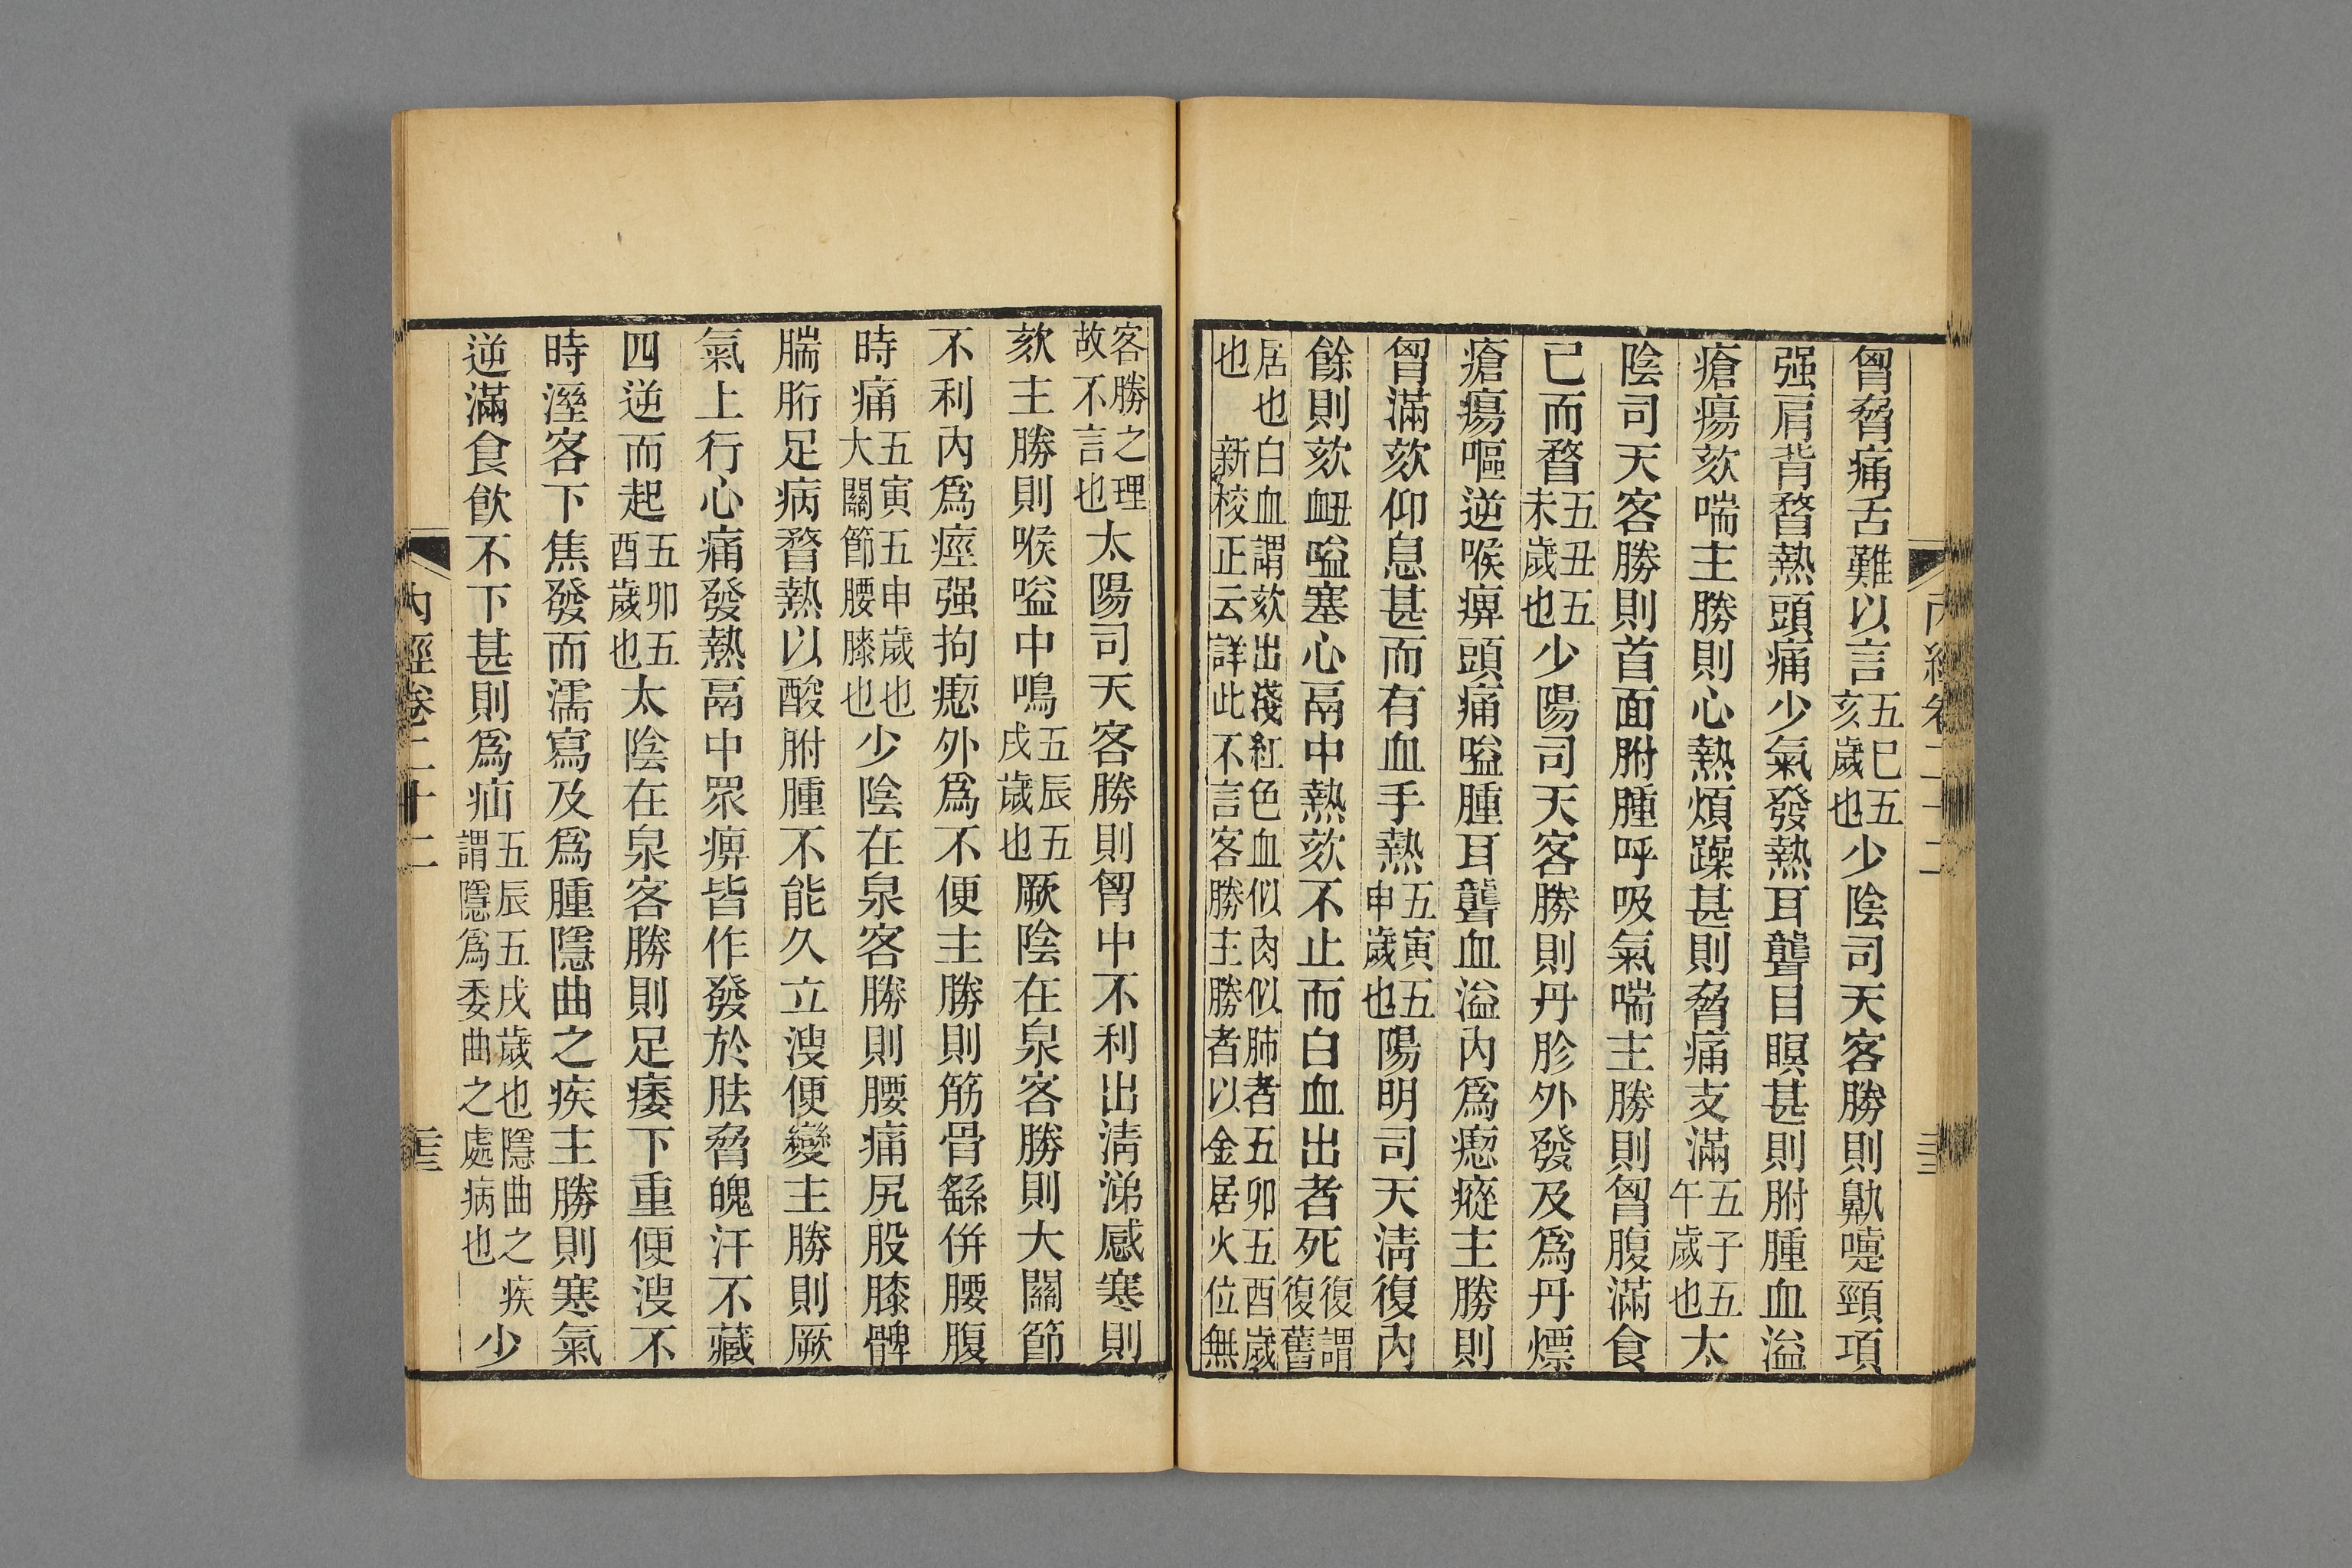 胷脅痛舌難以言五巳五亥歲也少陰司天客勝則鼽嚏頸項
强肩背瞀熱頭痛少氣發熱耳聾目瞑甚則胕腫血溢
瘡瘍欬喘主勝則心熱煩躁甚則脅痛支滿五子五午歲也太
陰司天客勝則首面胕腫呼吸氣喘主勝則胷腹滿食
已而瞀五丑五未歲也少陽司天客勝則丹胗外發及爲丹熛
瘡瘍嘔逆喉痹頭痛嗌腫耳聾血溢内爲瘛瘲主勝則
胷滿欬仰息甚而有血手熱五寅五申歲也陽明司天淸復内
餘則欬衄嗌塞心鬲中熱欬不止而白血出者死復謂復舊
居也白血謂欬出淺紅色血似肉似肺者五卯五酉歲
也　新校正云詳此不言客勝主勝者以金居火位無
客勝之理
故不言也太陽司天客勝則胷中不利出淸涕感寒則
欬主勝則喉嗌中鳴五辰五戌歲也厥陰在泉客勝則大關節
不利内爲痙强拘瘛外爲不便主勝則筋骨繇倂腰腹
時痛五寅五申歲也大關節腰膝也少陰在泉客勝則腰痛尻股膝髀
腨胻足病瞀熱以酸胕腫不能久立溲便變主勝則厥
氣上行心痛發熱鬲中眾痹皆作發於胠脅魄汗不藏
四逆而起五卯五酉歲也太陰在泉客勝則足痿下重便溲不
時溼客下焦發而濡寫及爲腫隱曲之疾主勝則寒氣
逆滿食飮不下甚則爲疝五辰五戌歲也隱曲之疾謂隱爲委曲之處病也少
内經卷二十二